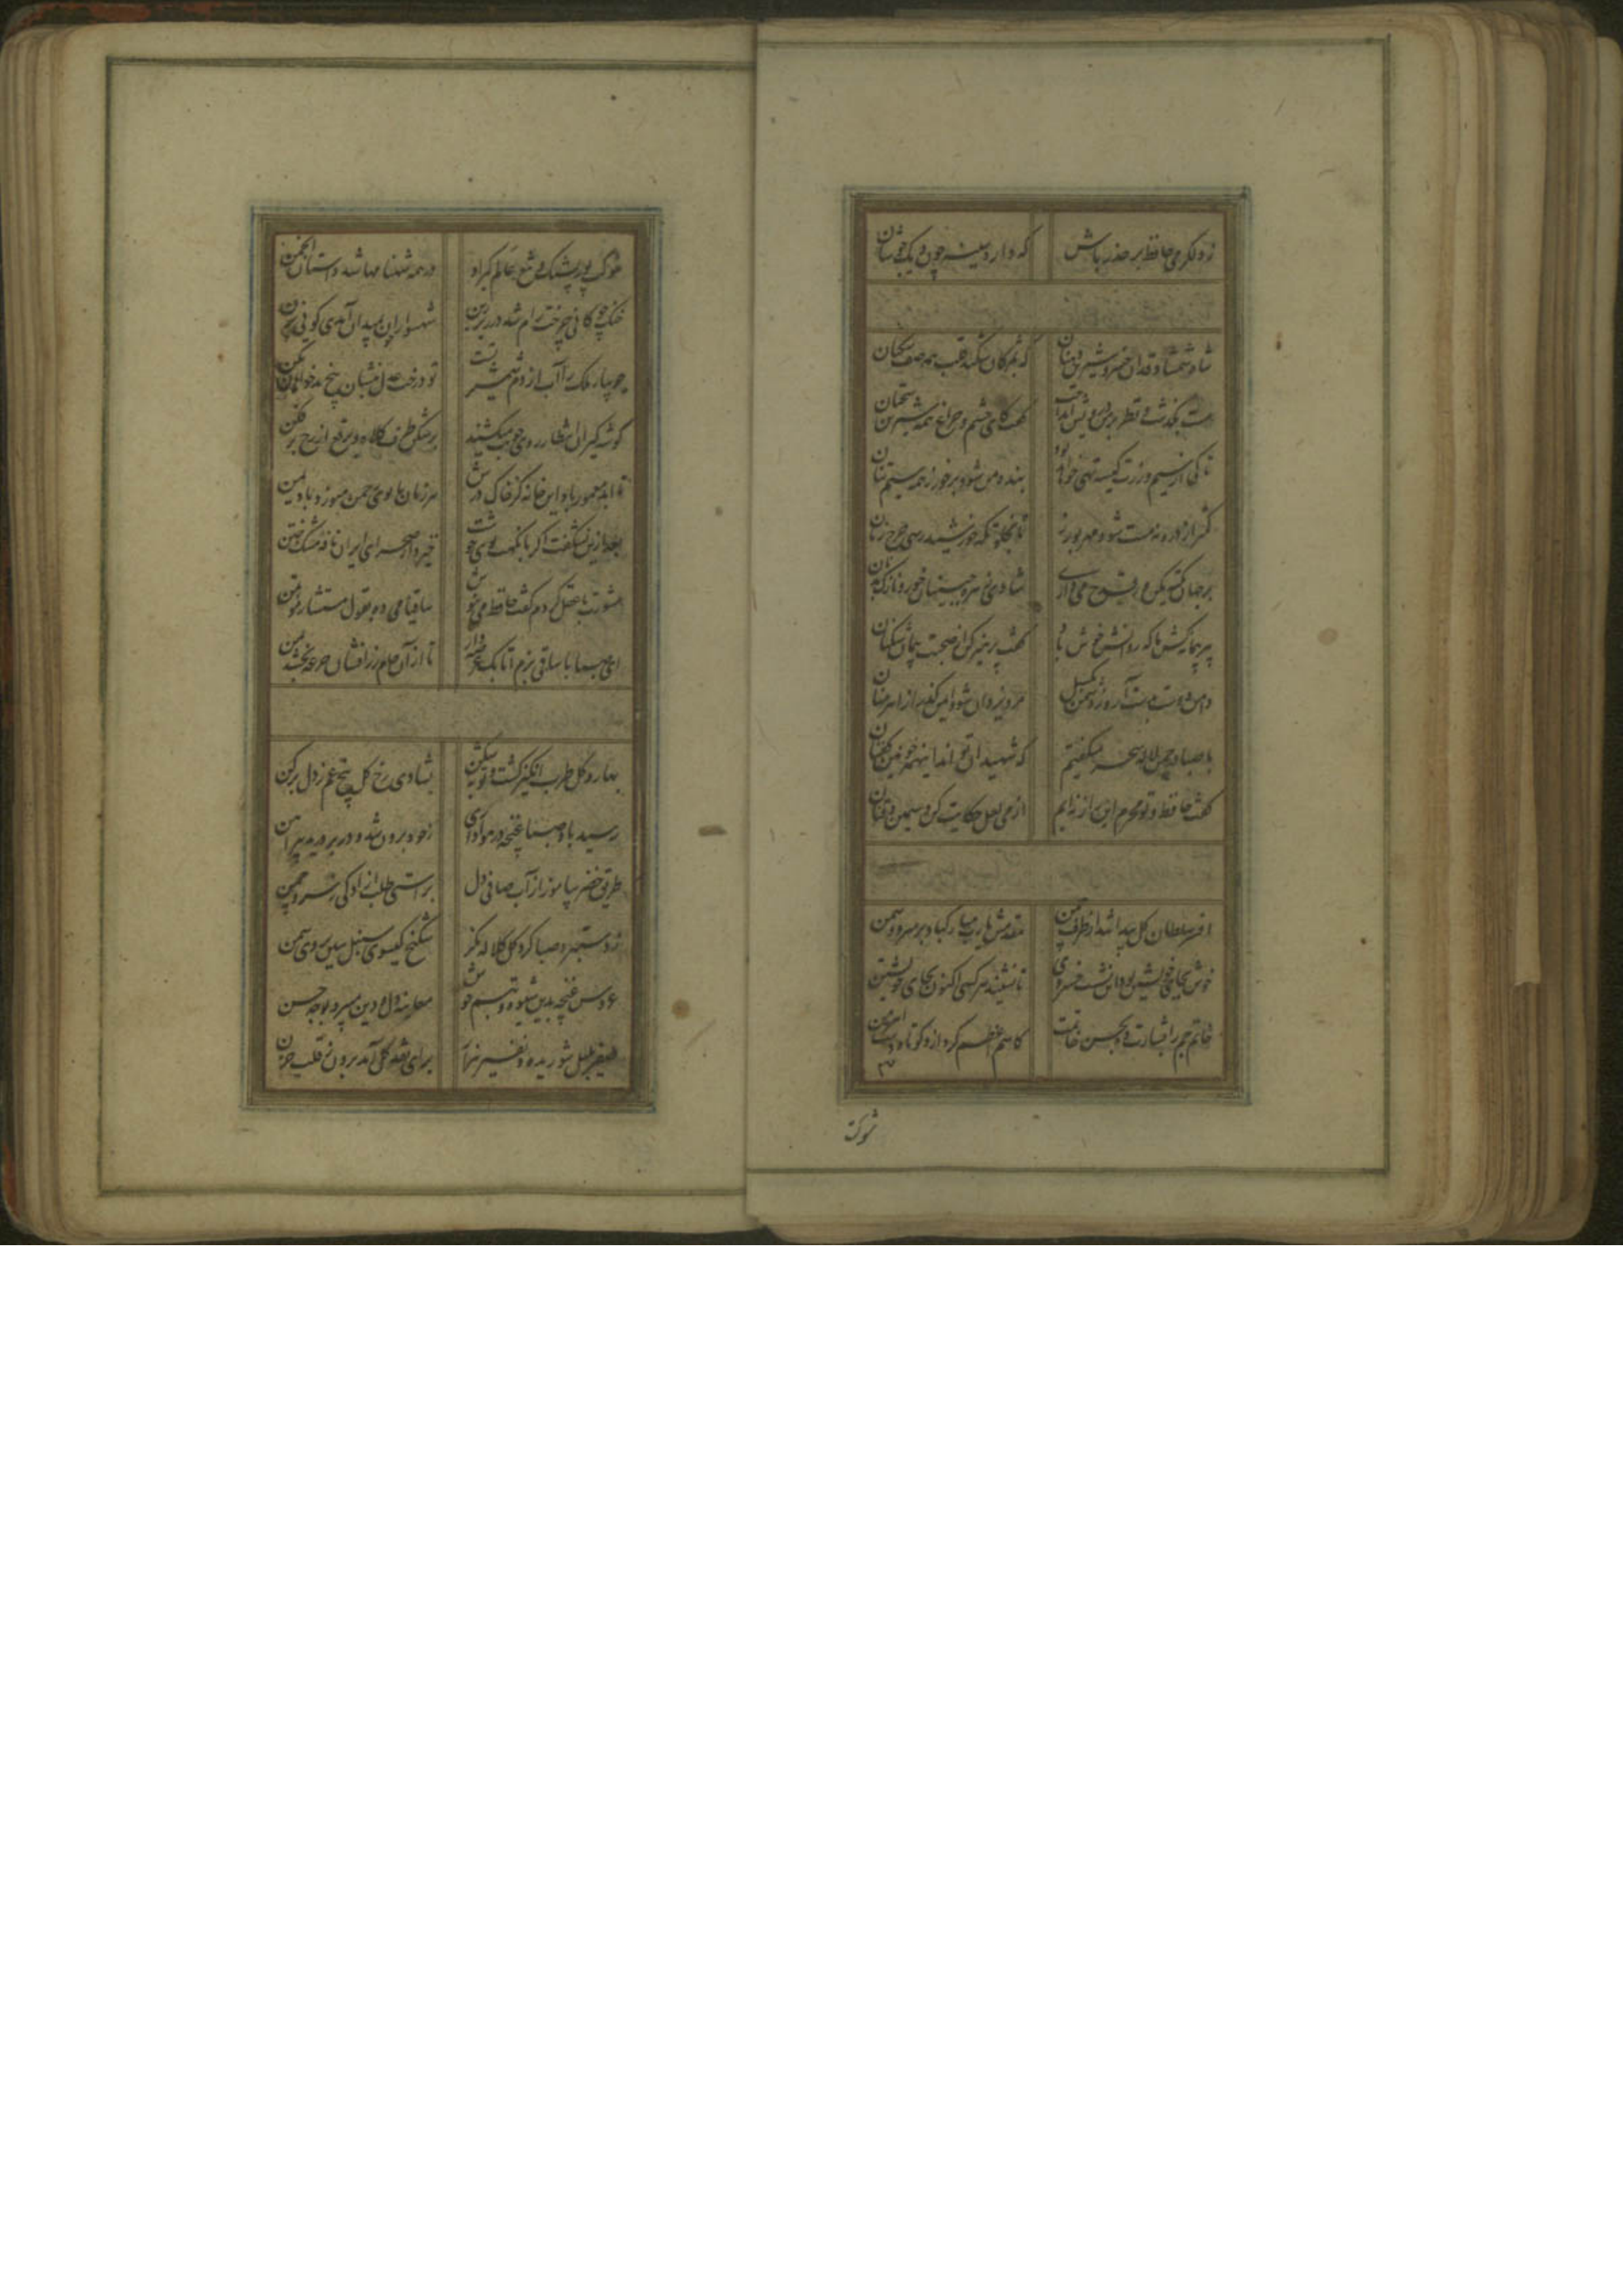 ز دلگرمی حافظ بر حذر باش که دارد سینه چون دیک جوشان
شاه شمشاد قدان خسرو شیرین دهنان که بمژکان شکند قلب همه صف شکنان
مست بگذشت و نظر بر من درویش انداخت گفت کای چشم و چراغ همه شیرین سخنان
تا کی از سیم و زرت کیسه تهی خواهد بود بنده من شو و برخور ز همه سیم تنان
کمتر از ذره نه پست مشو مهر بورز تا بخلوتکه خورشید رسی چرخ زنان
بر جهان تکیه مکن ور قدح می داری شادی زهره جبینان خور و نازک بدنان
پیر پیمانه کش ما که روانش خوش باد گفت پرهیز کن از صحبت پیمان شکنان
دامن دوست بدست آر و ز دشمن بگسل مرد یزدان شو و ایمن گذر از اهرمنان
با صبا در چمن لاله سحر میگفتم که شهیدان که اند اینهمه خونین کفنان
گفت حافظ من و تو محرم این راز نه ایم از می لعل حکایت کن و سیمین ذقنان
افسر سلطان گل پیدا شد از طرف چمن مقدمش یارب مبارکباد بر سرو و سمن
خوش بجای خویشتن بود این نشست خسروی تا نشیند هر کسی اکنون بجای خویشتن
خاتم جم را بشارت ده بحسن خاتمت کاسم اعظم کرد ازو کوتاه دست اهرمن
شوکت
شوکت پور پشنک و تیغ عالم گیر او در همه شهنامها شد داستان انجمن
خنک چوکانی چرخت رام شد در زیر زین شهسوارا چون بمیدان آمدی کوئی بزن
جویبار ملک را آب از دم شمشیر تست تو درخت عدل بنشان بیخ بدخواهان بکن
گوشه گیران انتظار روی خوب میکشند برشکن طرف کلاه و برقع از رخ برفکن
تا ابد معمور باد این خانه کز خاک درش هر زمان با بوی رحمن میوزد باد یمن
بعد ازین نشکفت اگر با نکهت خوی خوشت خیزد از صحرای ایران نافه مشک ختن
مشورت با عقل کردم گفت حافظ می بنوش ساقیا می ده بقول مستشار مؤتمن
ای صبا با ساقی بزم اتابک عرضه دار تا از آن جام زرافشان جرعه بخشد بمن
بهار و گل طرب انگیز گشت و توبه شکن بشادی رخ گل بیخ غم ز دل برکن
رسید باد صبا غنچه در هواداری ز خود برون شد و بر خود درید پیراهن
طریق خضر بیاموز از آب صافی دل براستی طلب آزادگی ز سرو چمن
ز دستبرد صبا گرد گل کلاله نگر شکنج گیسوی سنبل ببین بروی سمن
عروس غنچه بدین شیوه و تبسم خوش معاینه دل و دین میبرد بوجه حسن
صفیر بلبل شوریده و نفیر هزار برای وصل گل آمد برون ز قلب حزن